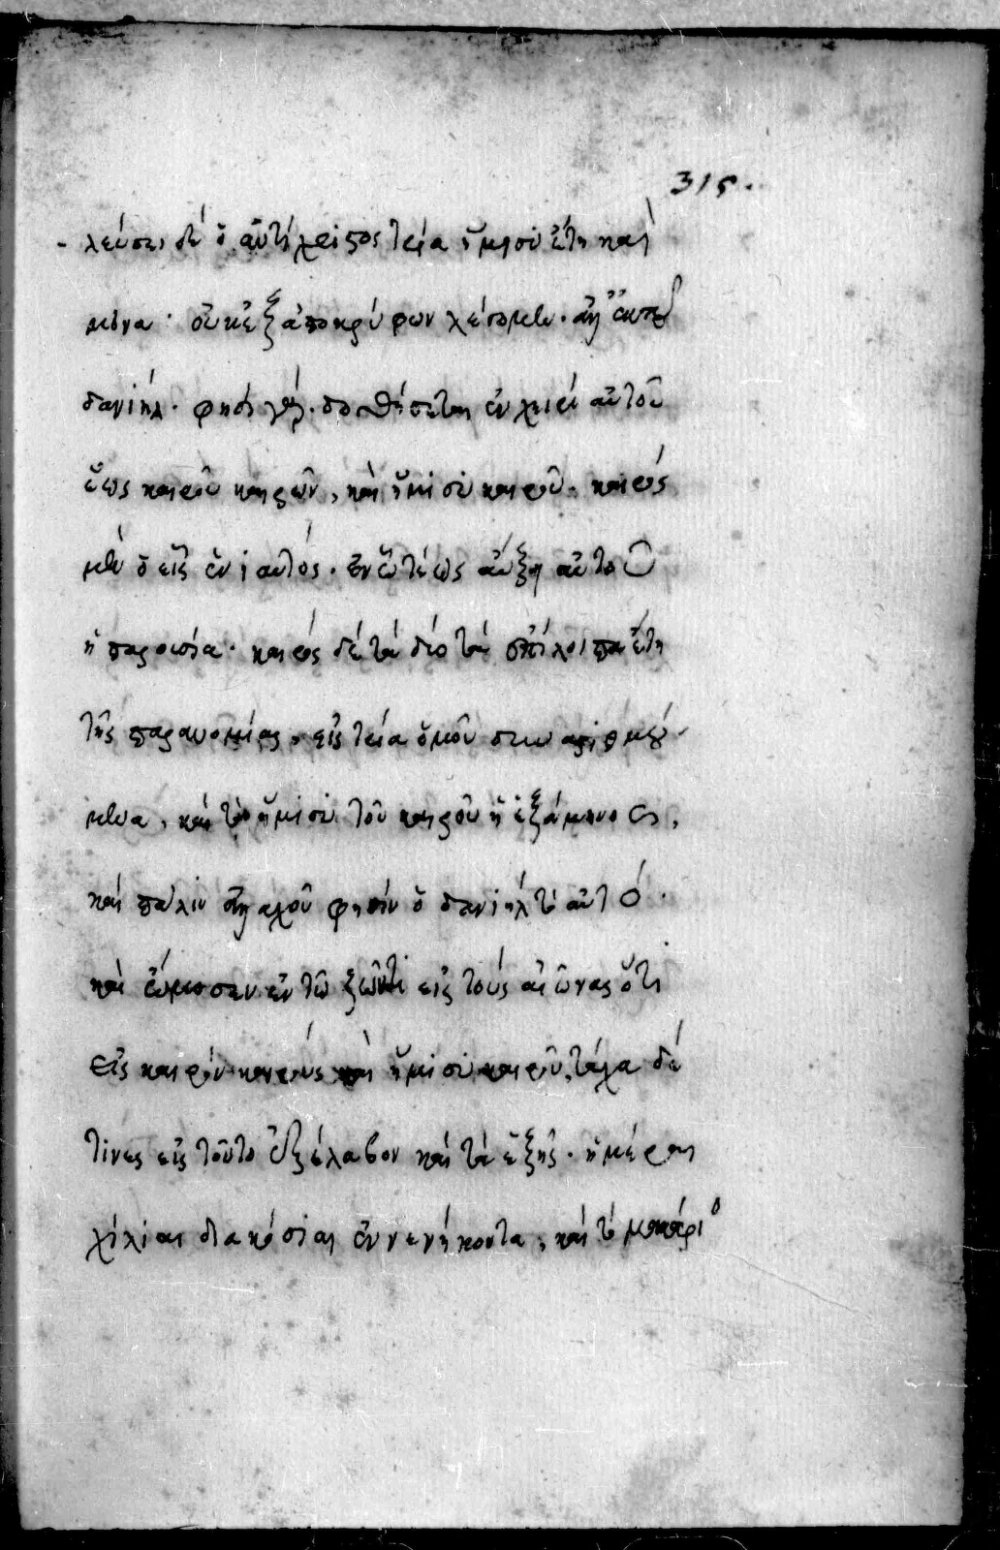 315.
- λεύσει δὲ ὁ ἀντίχριστος τρία ἥμισυ ἔτη καὶ
μόνα· οὐκ ἐξ ἀποκρύφων λέγομεν· ἀλλ' ἐκ τοῦ
δανιήλ· φησὶ γάρ· δοθήσεται ἐν χειρὶ αὐτοῦ
ἕως καιροῦ καιρῶν, καὶ ἥμισυ καιροῦ· καιρὸς
μὲν ὁ εἷς ἐνιαυτός· ἐν ᾧ τέως αὔξῃ αὐτοῦ
ἡ παρουσία· καιροὶ δὲ τὰ δύο τὰ ἐπίλοιπα ἔτη
τῆς παρανομίας, εἰς τρία ὁμοῦ συναριθμού-
μενα, καὶ τὸ ἥμισυ τοῦ καιροῦ ἡ ἑξάμηνος,
καὶ πάλιν ἀλλαχοῦ φησὶν ὁ δανιὴλ τὸ αὐτό·
καὶ ὤμοσεν ἐν τῷ ζῶντι εἰς τοὺς αἰῶνας ὅτι
εἰς καιρὸν καιροὺς καὶ ἥμισυ καιροῦ, τάχα δέ
τινες εἰς τοῦτο ἐξέλαβον καὶ τὰ ἑξῆς· ἡμέραι
χίλιαι διακόσιαι ἐννενήκοντα, καὶ τὸ μακάριο